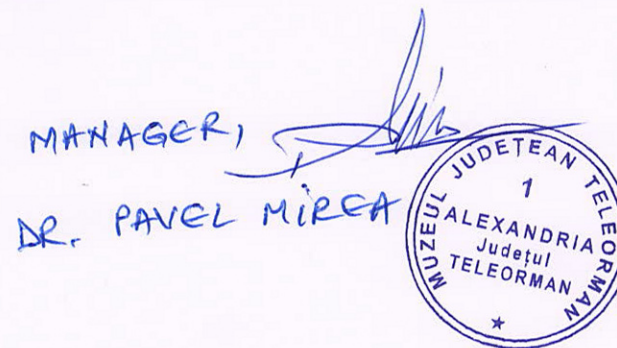 MANAGER,
DR. PAVEL MIREA
MUZEUL JUDEȚEAN TELEORMAN
1
ALEXANDRIA
Județul
TELEORMAN